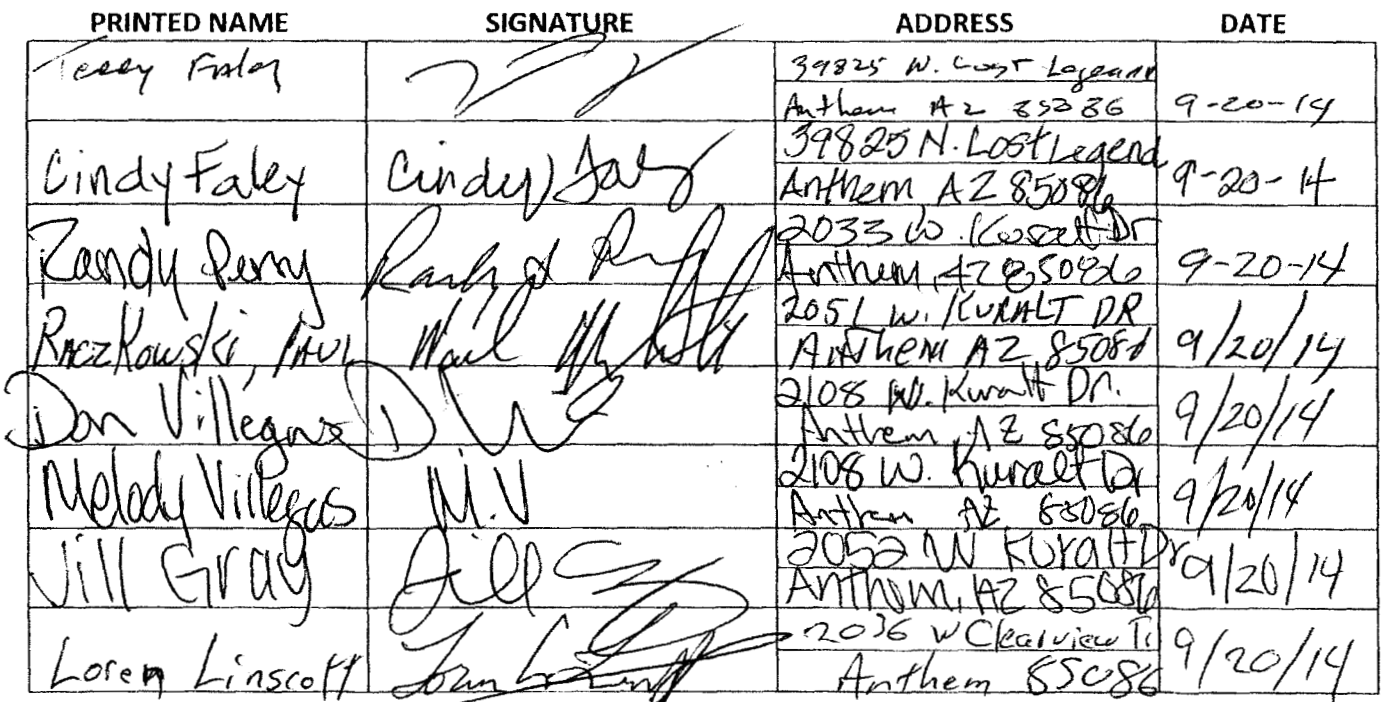 PRINTED NAME SIGNATURE ADDRESS DATE
Terry Faley 39825 N. Lost Legend
Anthem AZ 85086 9-20-14
Cindy Faley Cindy Faley 39825 N. Lost Legend
Anthem, AZ 85086 9-20-14
Randy Perry 2033 W. Kuralt Dr
Anthem, AZ 85086 9-20-14
Raczkowski, PAUL 2051 W. KURALT DR
Anthem AZ 85086 9/20/14
Don Villegas D V 2108 W. Kuralt Dr.
Anthem, AZ 85086 9/20/14
Melody Villegas M.V 2108 W. Kuralt Dr
Anthem AZ 85086 9/20/14
Jill Gray Jill G 2052 W Kuralt Dr
Anthem, AZ 85086 9/20/14
Loren Linscott 2036 W Clearview Tr
Anthem 85086 9/20/14